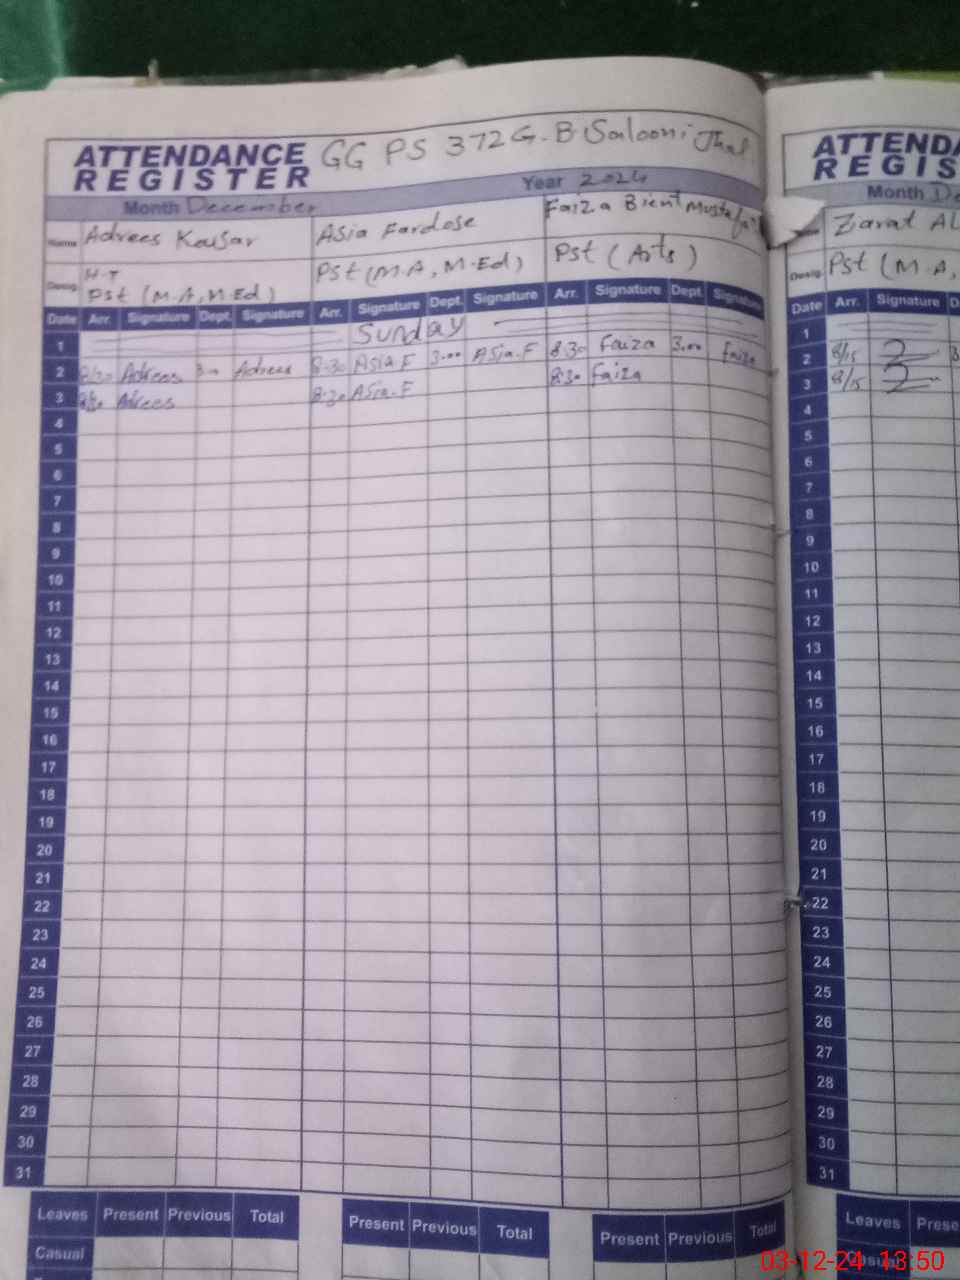 ATTENDANCE REGISTER GG PS 372 G.B Salooni Jhal
Month December Year 2024
Name Adrees Kousar Asia Fardose Faiza Bient Mustafa
Desig. H.T Pst (M.A, M.Ed) Pst (M.A, M.Ed) Pst (Arts)
Date Arr. Signature Dept. Signature Arr. Signature Dept. Signature Arr. Signature Dept. Signature
1 Sunday
2 8/30 Adrees 3.00 Adrees 8:30 Asia.F 3.00 Asia.F 8:30 Faiza 3.00 Faiza
3 8/30 Adrees 8:30 Asia.F 8:30 Faiza
4
5
6
7
8
9
10
11
12
13
14
15
16
17
18
19
20
21
22
23
24
25
26
27
28
29
30
31
Leaves Present Previous Total Present Previous Total Present Previous Total
Casual
ATTENDA
REGIS
Month De
Ziarat Al
Desig. Pst (M.A,
Date Arr. Signature D
1
2 8/15 3
3 8/15
4
5
6
7
8
9
10
11
12
13
14
15
16
17
18
19
20
21
22
23
24
25
26
27
28
29
30
31
Leaves Prese
Casual
03-12-24 13:50